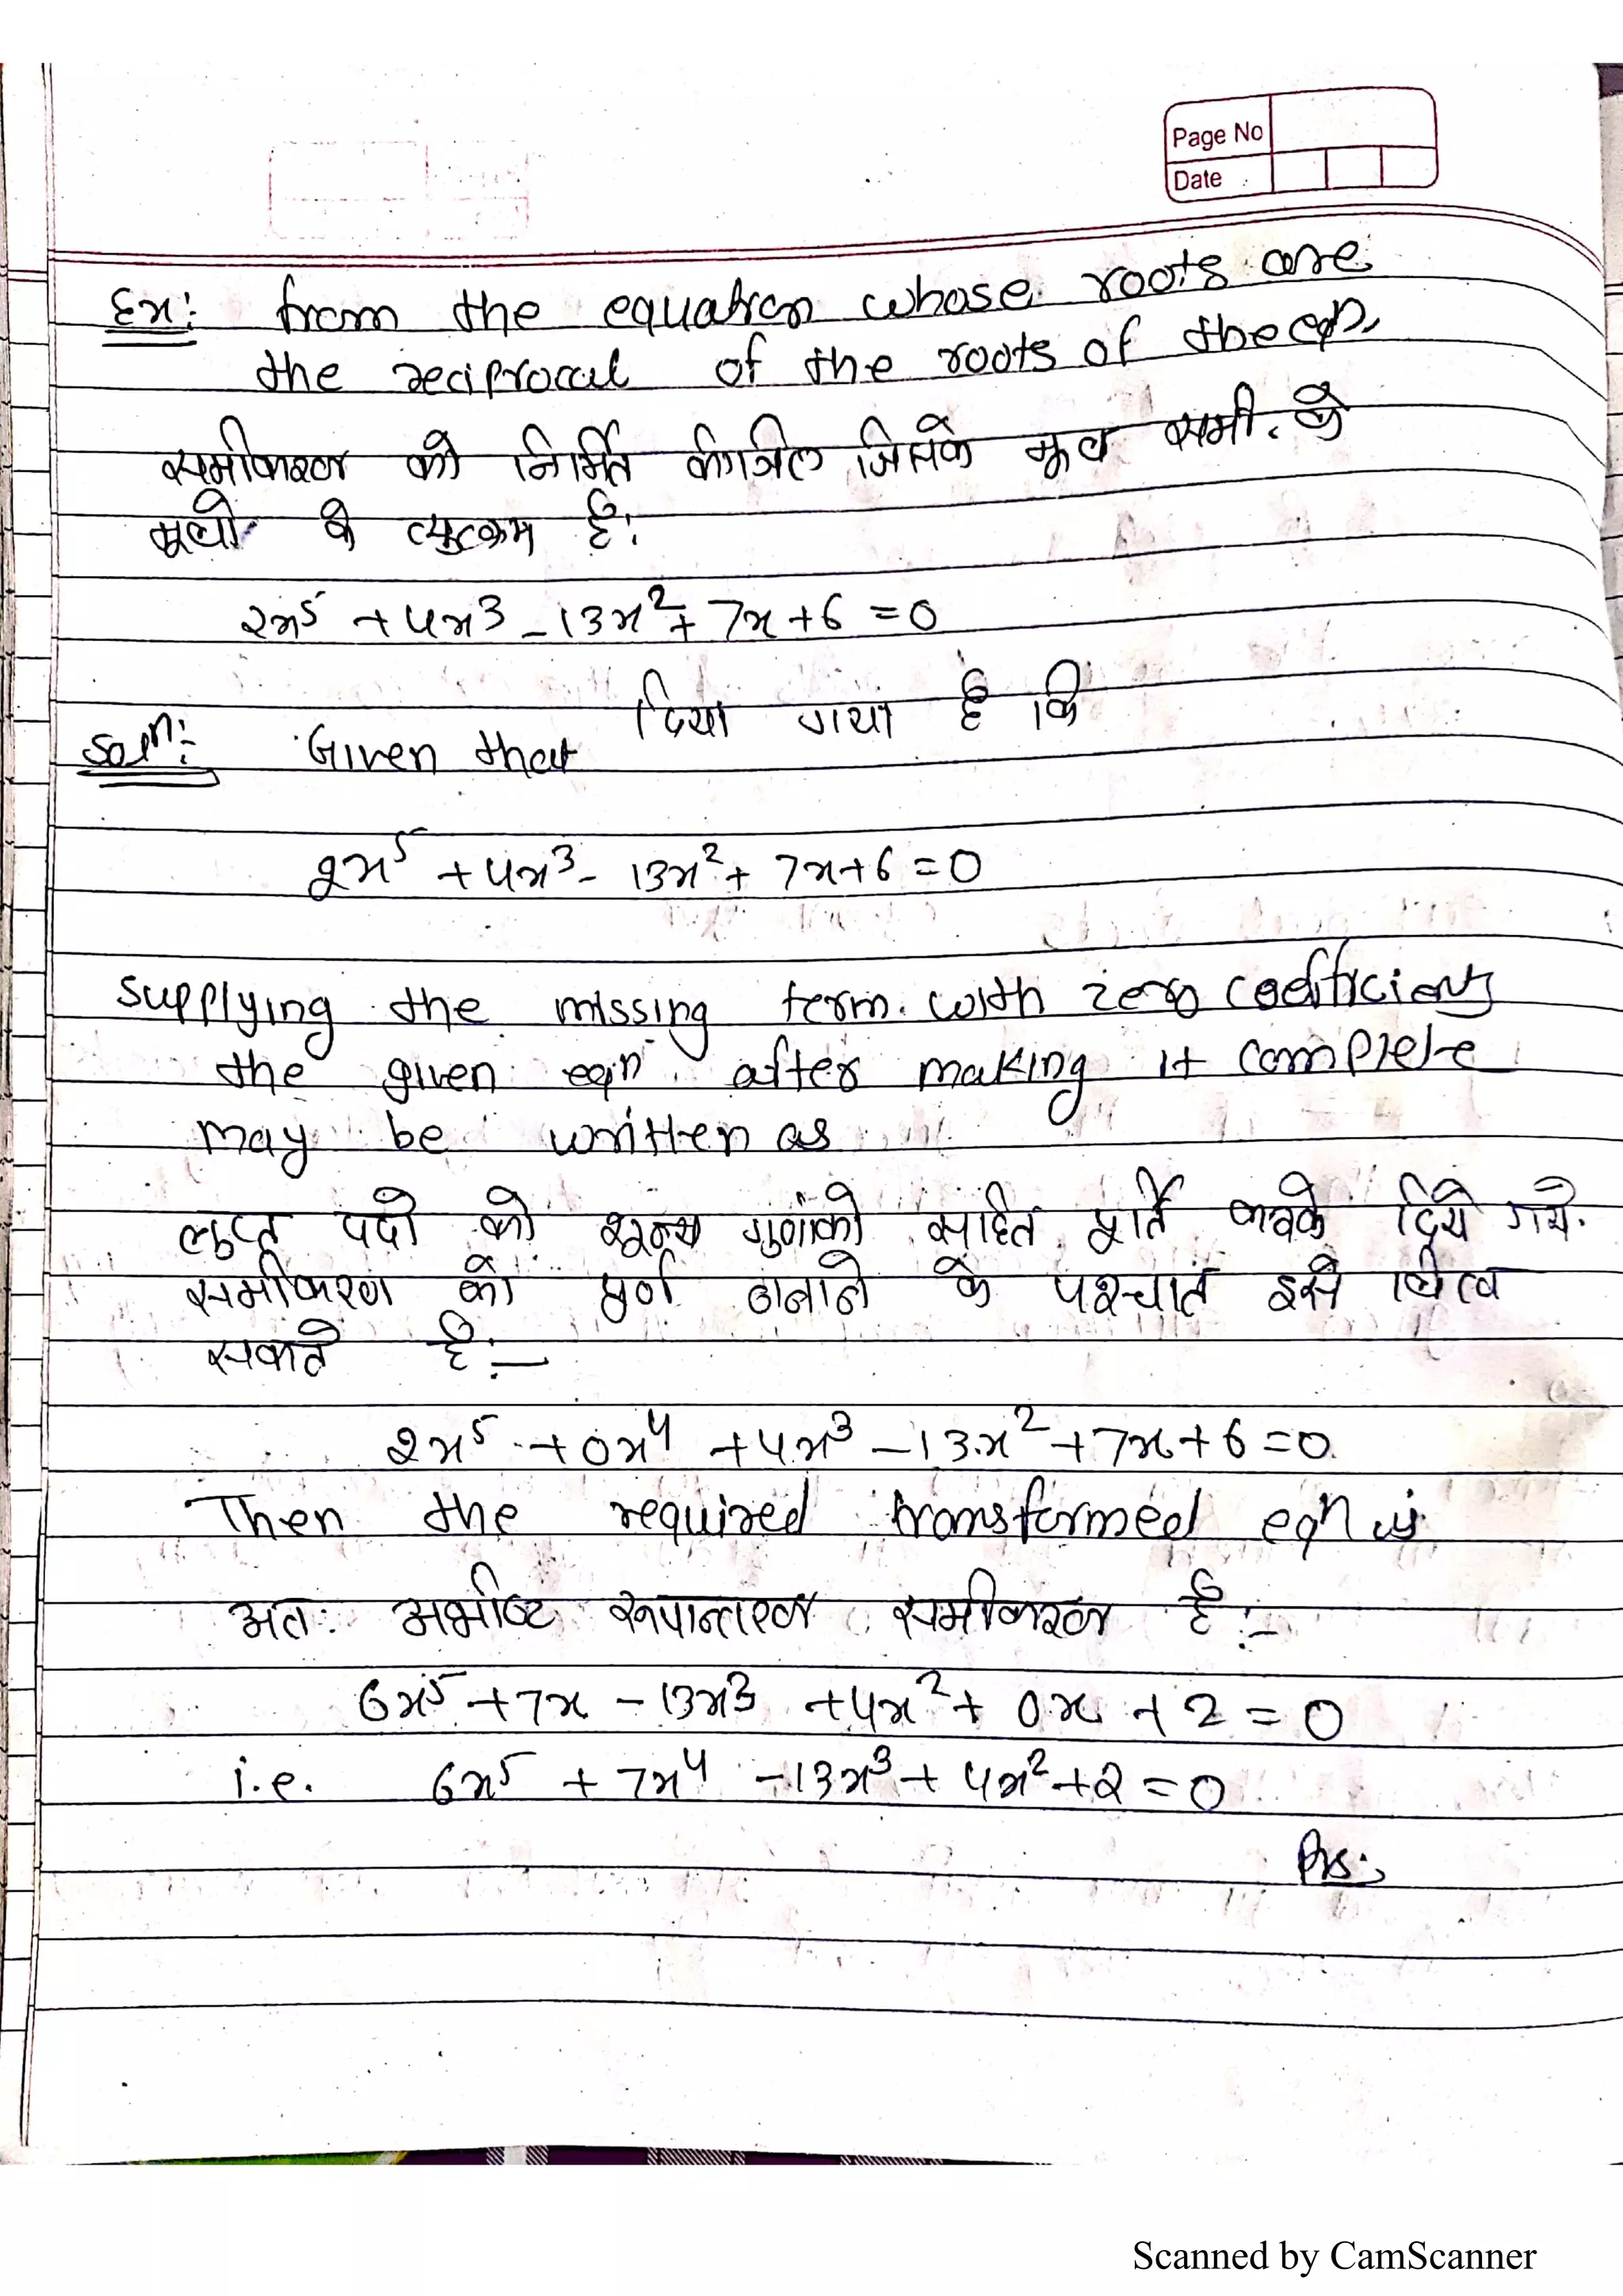 Page No
Date
Ex: from the equation whose roots are
the reciprocal of the roots of the eqn.
समीकरण को निर्मित कीजिए जिसके मूल समी. के
मूलो के व्युत्क्रम है।
2x⁵ + 4x³ - 13x² + 7x + 6 = 0
दिया गया है कि
Solⁿ: Given that
2x⁵ + 4x³ - 13x² + 7x + 6 = 0
Supplying the missing term with zero coefficients
the given eqⁿ after making it complete
may be written as
लुप्त पदो को शून्य गुणांको सहित पूर्ति करके दिये गये
समीकरण को पूर्ण बनाने के पश्चात इसे लिख
सकते है :-
2x⁵ + 0x⁴ + 4x³ - 13x² + 7x + 6 = 0
Then the required transformed eqⁿ is
अतः अभीष्ट रूपान्तरण समीकरण है :-
6x⁵ + 7x - 13x³ + 4x² + 0x + 2 = 0
i.e. 6x⁵ + 7x⁴ - 13x³ + 4x² + 2 = 0
Ans:
Scanned by CamScanner